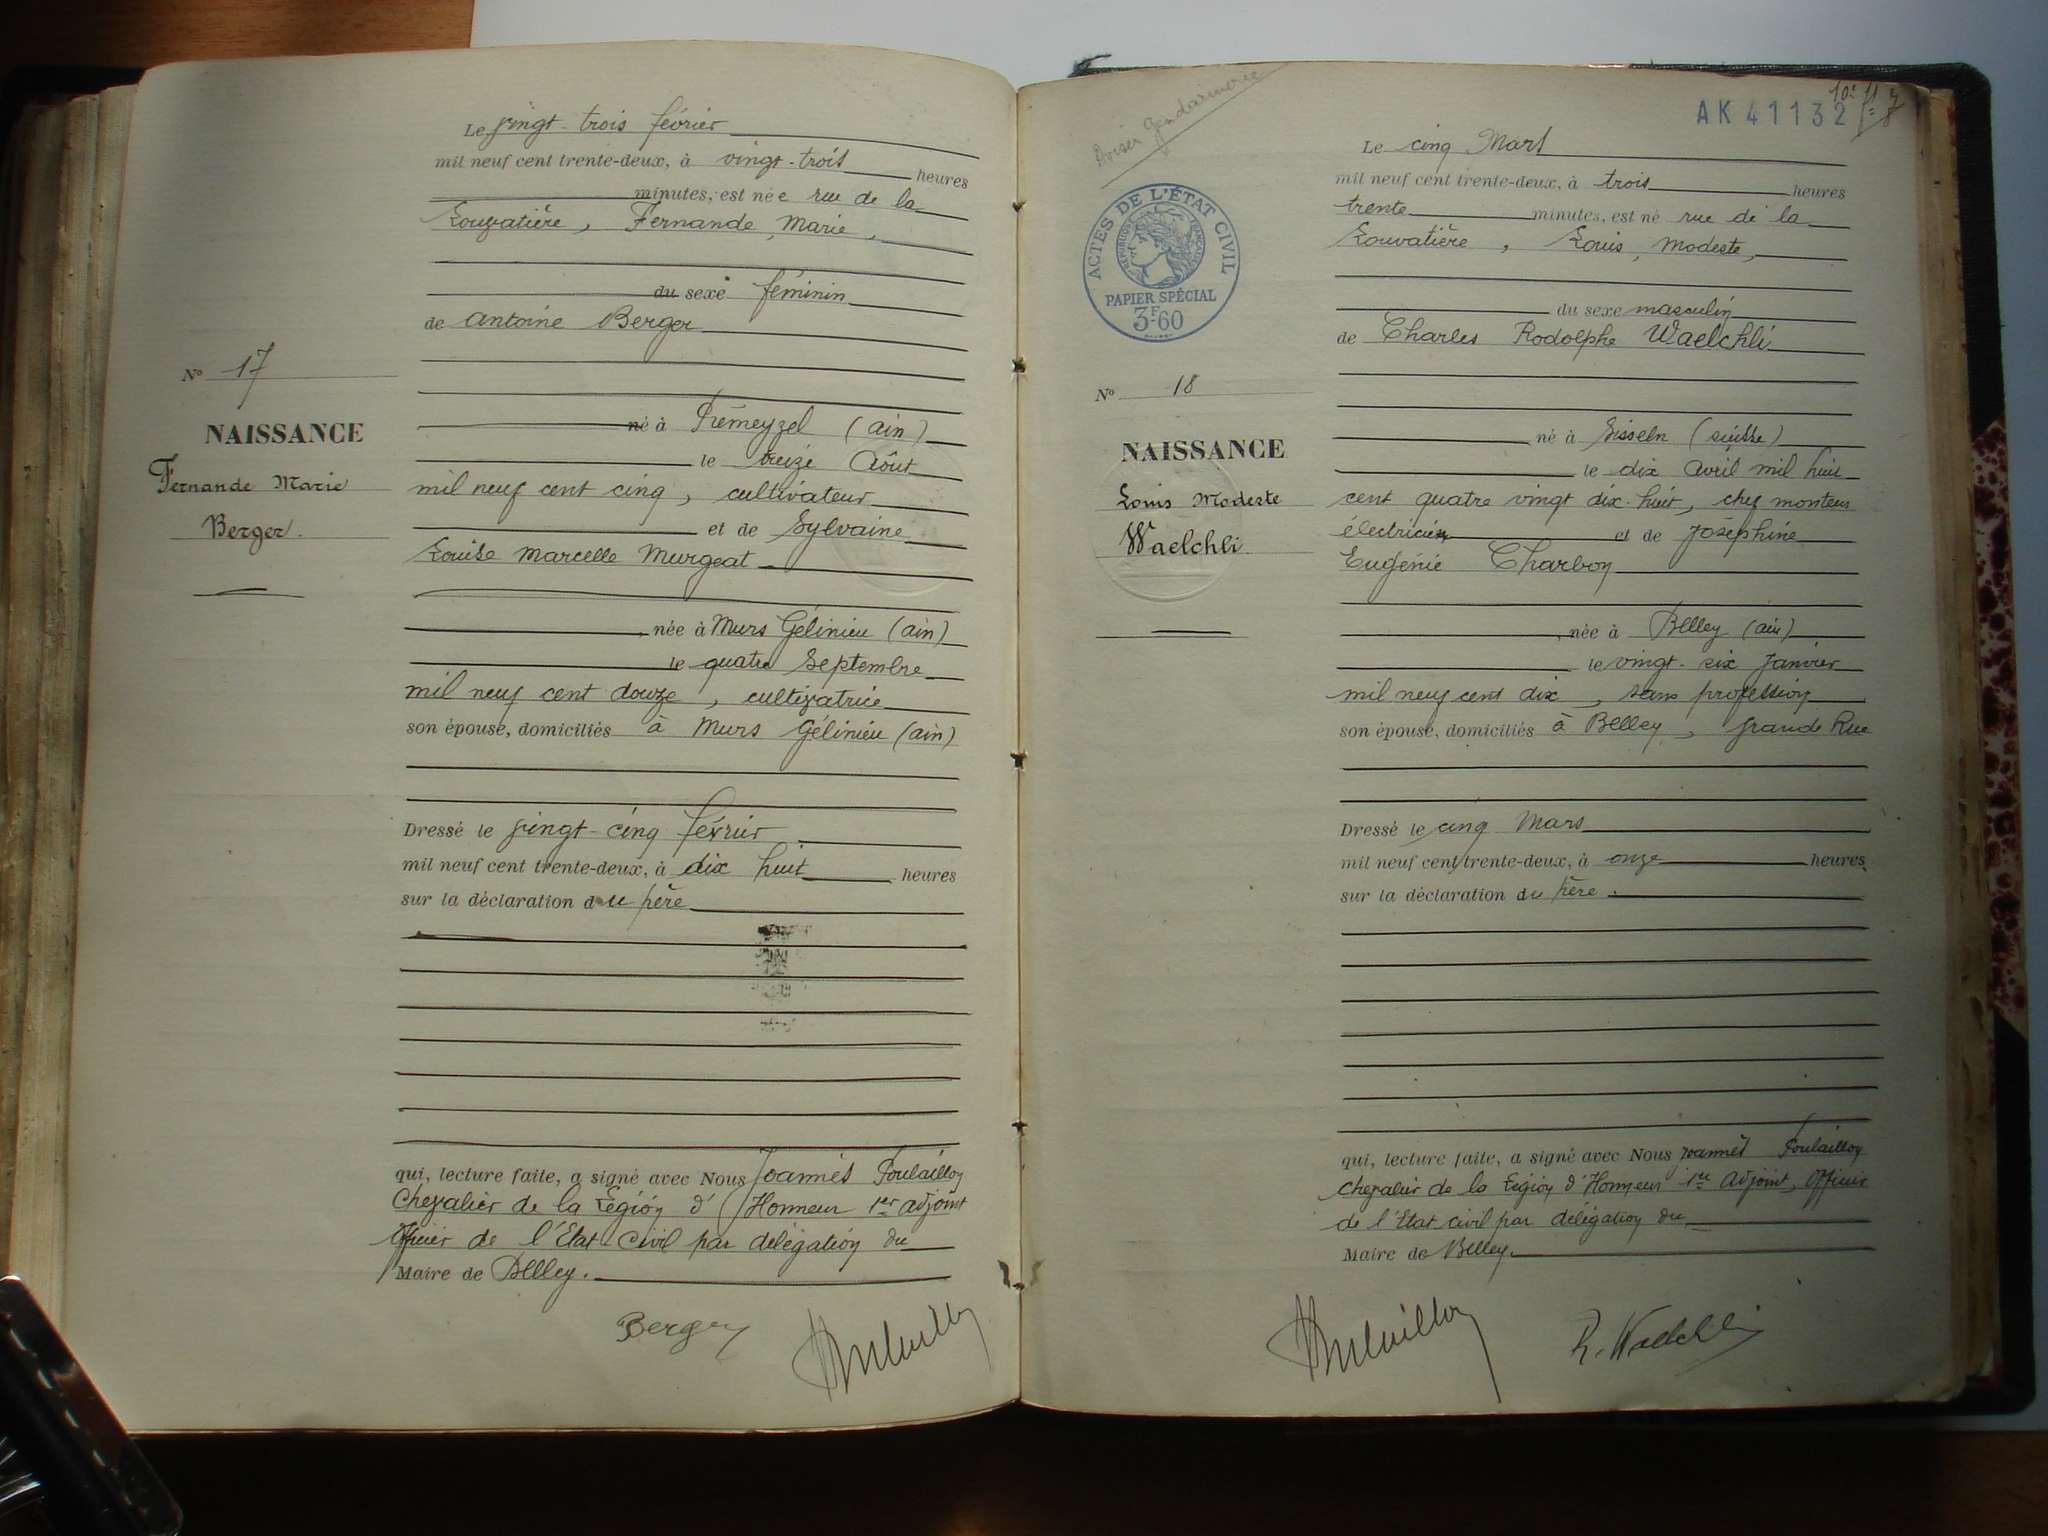 Le vingt-trois février
mil neuf cent trente-deux, à vingt-trois heures
minutes, est née rue de la
Louvatière, Fernande, Marie,
du sexe féminin
de Antoine Berger
né à Prémeyzel (ain)
le treize Août
mil neuf cent cinq, cultivateur
et de Sylvaine
Louise Marcelle Murgeat
née à Murs Gélinieu (ain)
le quatre Septembre
mil neuf cent douze, cultivatrice
son épouse, domiciliés à Murs Gélinieu (ain)
Dressé le vingt-cinq février
mil neuf cent trente-deux, à dix huit heures
sur la déclaration du père
qui, lecture faite, a signé avec Nous Joannès Poulaillon
Chevalier de la Légion d'Honneur 1er adjoint
Officier de l'Etat-Civil par délégation du
Maire de Belley.
Berger
Nº 17
NAISSANCE
Fernande Marie
Berger.
Aviser gendarmerie
AK 41132
ACTES DE L'ÉTAT CIVIL
RÉPUBLIQUE FRANÇAISE
PAPIER SPÉCIAL
3F60
Nº 18
NAISSANCE
Louis Modeste
Waelchli.
Le cinq Mars
mil neuf cent trente-deux, à trois heures
trente minutes, est né rue de la
Louvatière, Louis, Modeste,
du sexe masculin
de Charles Rodolphe Waelchli
né à Sisseln (suisse)
le dix avril mil huit
cent quatre vingt dix-huit, chef monteur
électricien et de Joséphine
Eugénie Charbon
née à Belley (ain)
le vingt-six Janvier
mil neuf cent dix, sans profession
son épouse, domiciliés à Belley, grande Rue
Dressé le cinq Mars
mil neuf cent trente-deux, à onze heures
sur la déclaration du père.
qui, lecture faite, a signé avec Nous Joannès Poulaillon
Chevalier de la Légion d'Honneur 1er adjoint, Officier
de l'Etat civil par délégation du
Maire de Belley.
Poulaillon
R. Waelchli